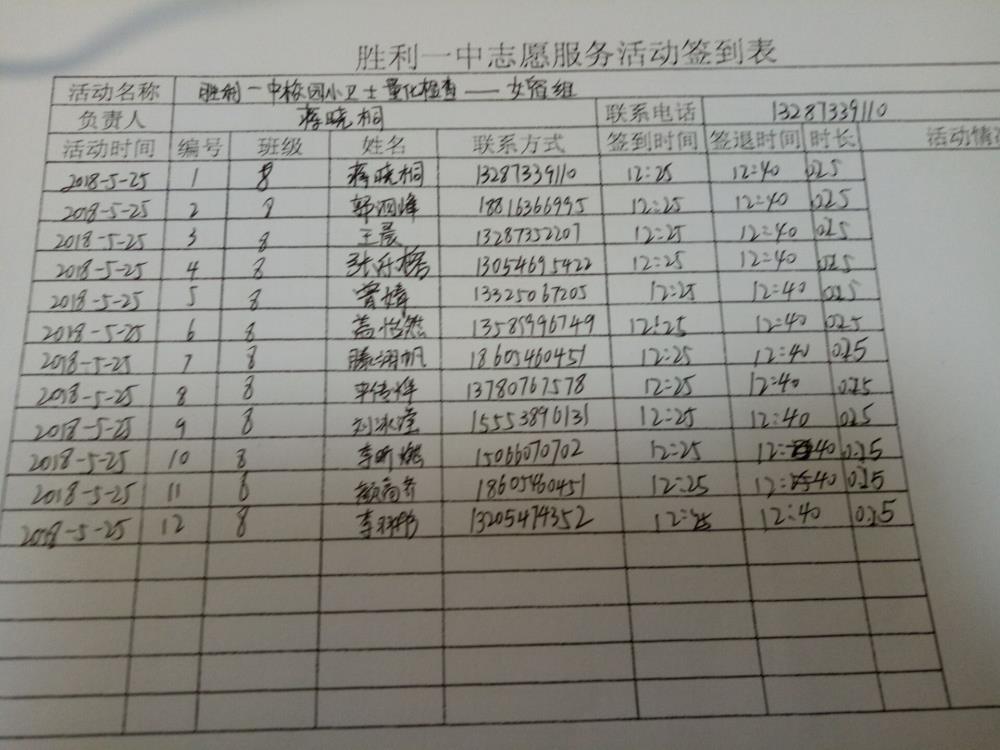 胜利一中志愿服务活动签到表
活动名称 胜利一中校园小卫士量化检查——女宿组
负责人 蒋晓桐 联系电话 13287339110
活动时间 编号 班级 姓名 联系方式 签到时间 签退时间 时长 活动情
2018-5-25 1 8 蒋晓桐 13287339110 12:25 12:40 0.25
2018-5-25 2 8 郭泗峰 18816366995 12:25 12:40 0.25
2018-5-25 3 8 王晨 13287352207 12:25 12:40 0.25
2018-5-25 4 8 13054695422 12:25 12:40 0.25
2018-5-25 5 8 13325067205 12:25 12:40 0.25
2018-5-25 6 8 盖怡然 13585996749 12:25 12:40 0.25
2018-5-25 7 8 滕翔帆 18605460451 12:25 12:40 0.25
2018-5-25 8 8 13780767578 12:25 12:40 0.25
2018-5-25 9 8 刘冰莹 15553896131 12:25 12:40 0.25
2018-5-25 10 8 李昕燃 15066070702 12:25 12:40 0.25
2018-5-25 11 8 18605460451 12:25 12:40 0.25
2018-5-25 12 8 13205474352 12:25 12:40 0.25